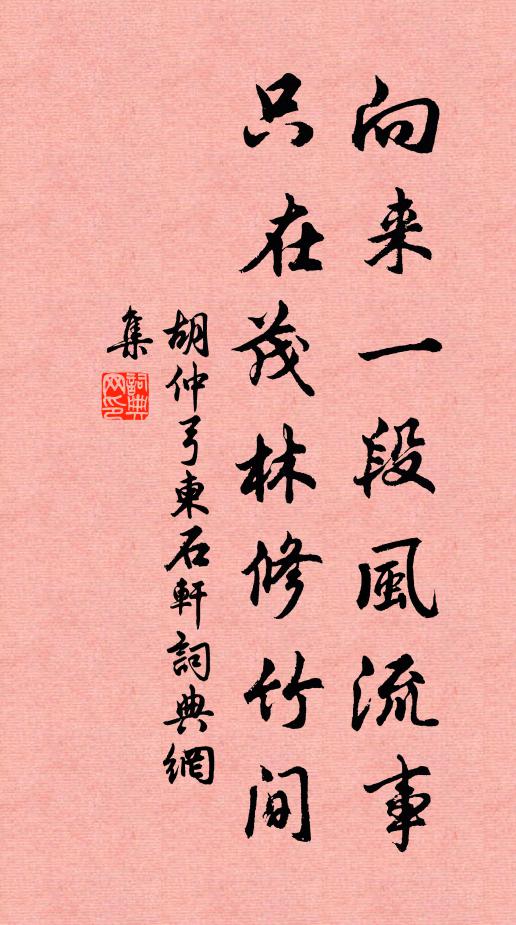 向来一段風流事
只在茂林修竹间
胡仲弓東石軒詞典網
集
詞典网印